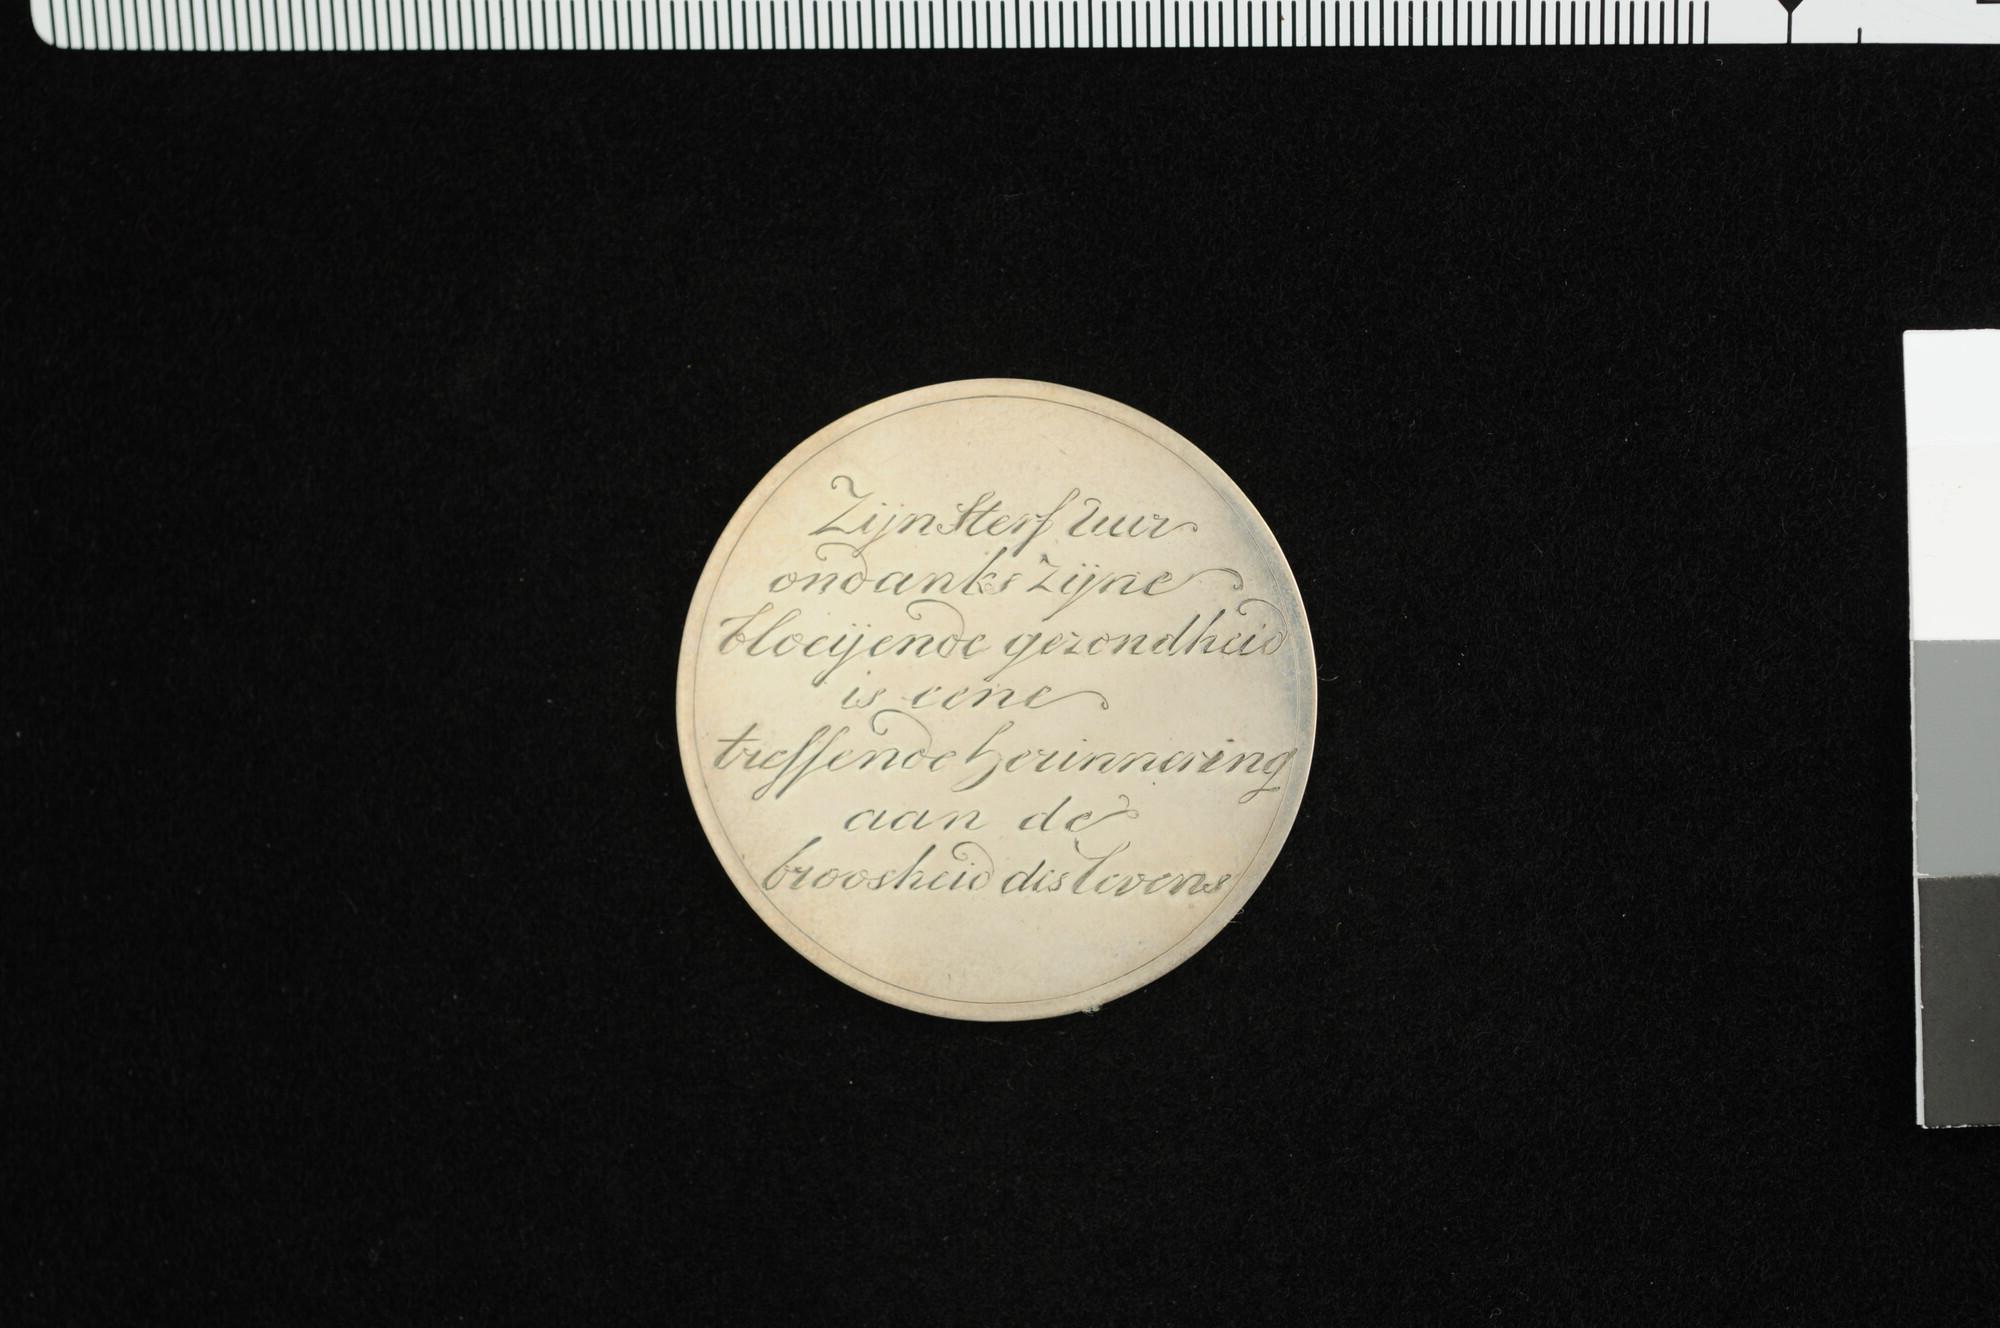 Zijn Sterf Uur
ondanks zijne
bloeijende gezondheid
is eene
treffende herinnering
aan de
broosheid des levens